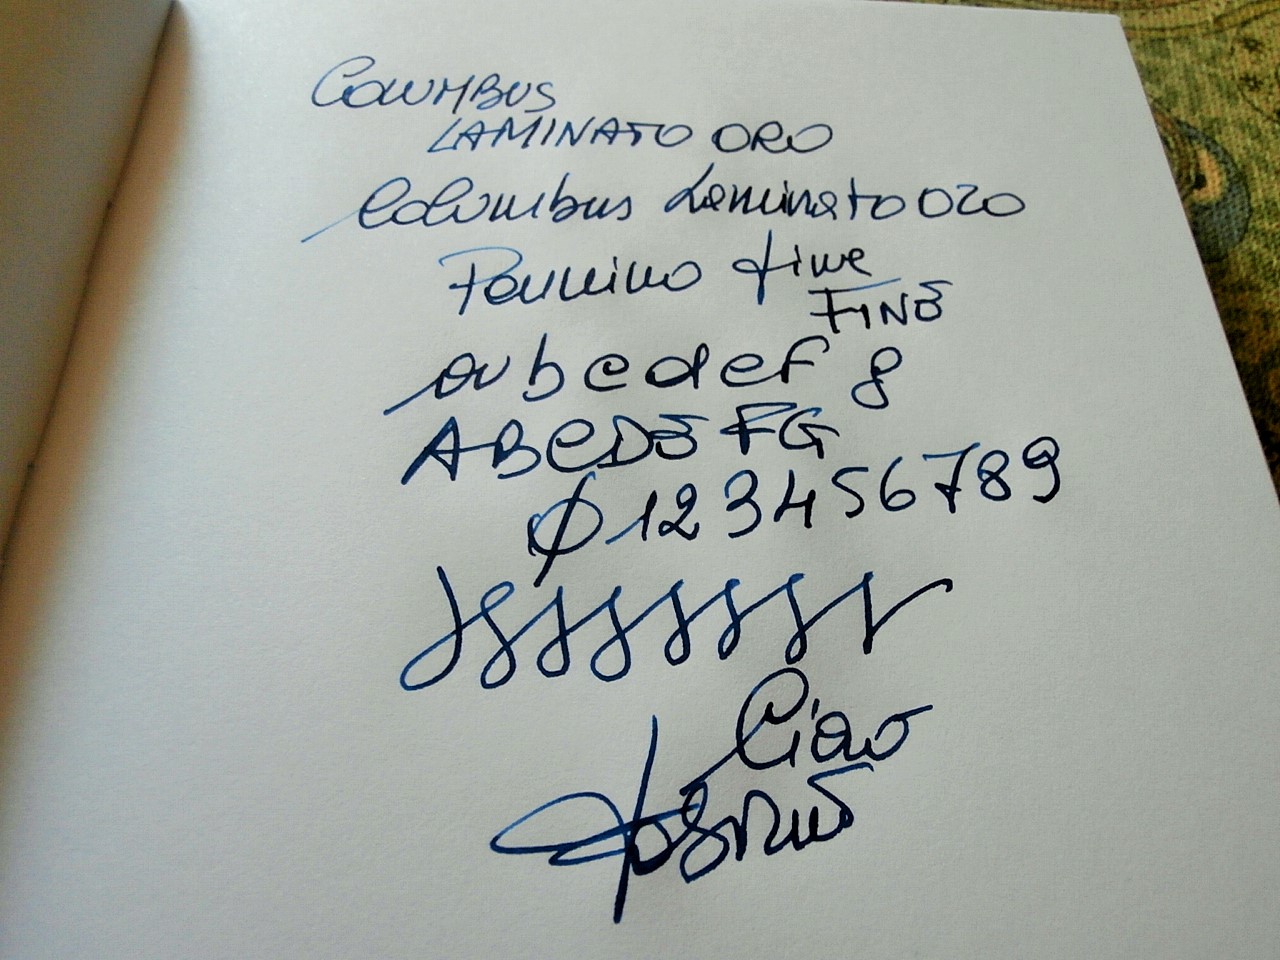 COLUMBUS
LAMINATO ORO
Columbus Laminato Oro
Pennino fine
FINE
a b c d e f g
A B C D E F G
0 1 2 3 4 5 6 7 8 9
Ciao